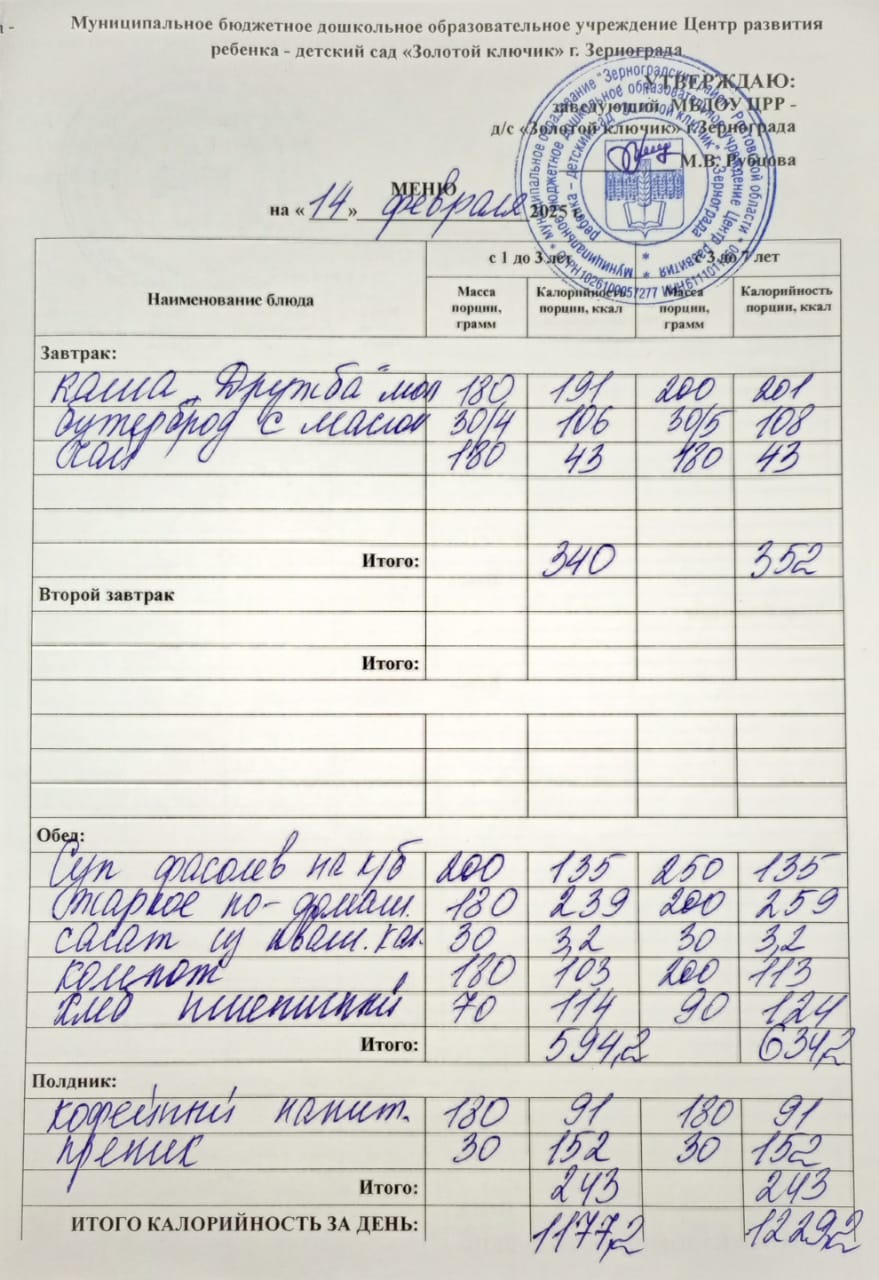 Муниципальное бюджетное дошкольное образовательное учреждение Центр развития
ребенка - детский сад «Золотой ключик» г. Зернограда
УТВЕРЖДАЮ:
заведующий МБДОУ ЦРР -
д/с «Золотой ключик» г.Зернограда
М.В. Рубцова
МЕНЮ
на «14» февраля 2025 г.
Наименование блюда с 1 до 3 лет с 3 до 7 лет
Масса порции, грамм Калорийность порции, ккал Масса порции, грамм Калорийность порции, ккал
Завтрак:
каша "Дружба" мол 180 191 200 201
бутерброд с маслом 30/4 106 30/5 108
чай 180 43 180 43
Итого: 340 352
Второй завтрак
Итого:
Обед:
Суп фасолев на к/б 200 135 250 135
Жаркое по-домаш. 180 239 200 259
салат из кваш. кап. 30 3,2 30 3,2
компот 180 103 200 113
хлеб пшеничный 70 114 90 124
Итого: 594,2 634,2
Полдник:
кофейный напит. 180 91 180 91
пряник 30 152 30 152
Итого: 243 243
ИТОГО КАЛОРИЙНОСТЬ ЗА ДЕНЬ: 1177,2 1229,2